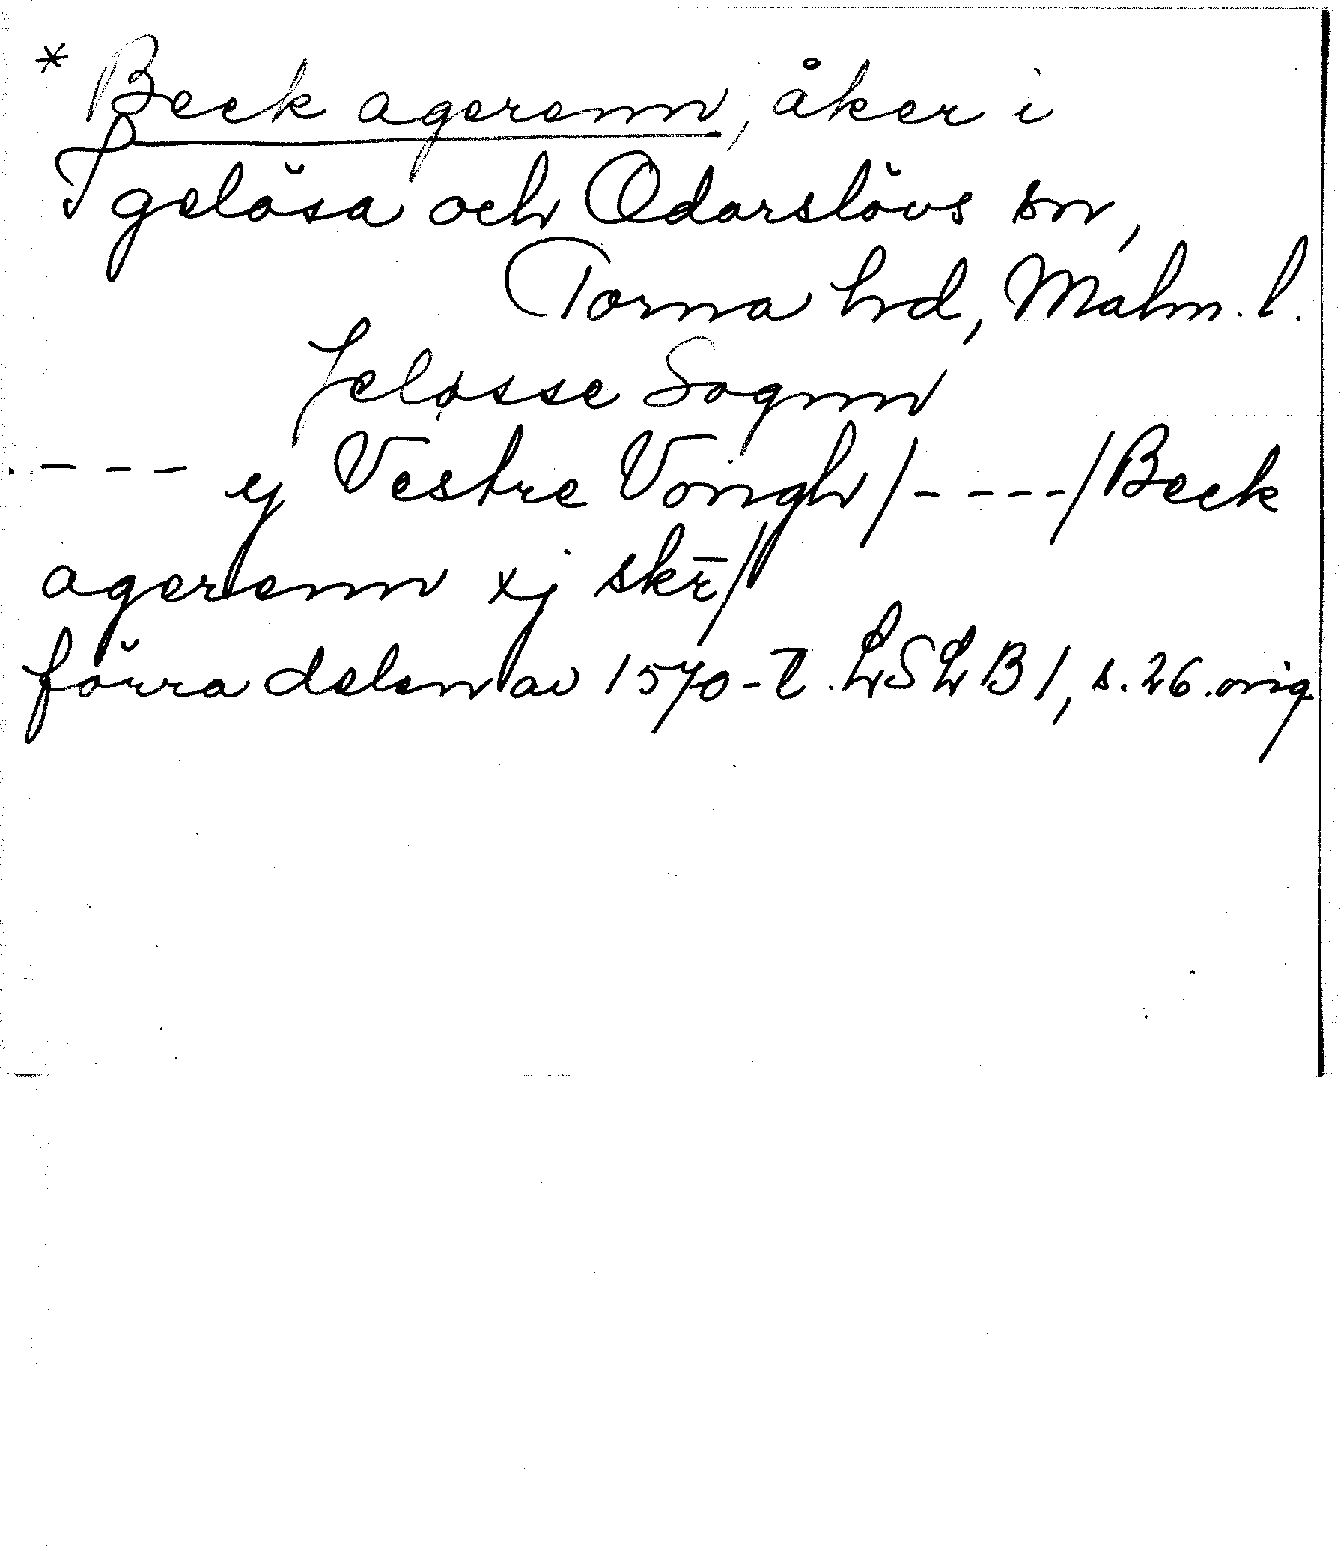 * Beck agerenn, åker i
Igelösa och Odarslövs sn,
Torna hd, Malm. l.
Jeløsse Sognn
---- y Vestre Vongh/----/Beck
agerenn xj skr̄//
förra delen av 1570-t. LSLB 1, s. 26. orig